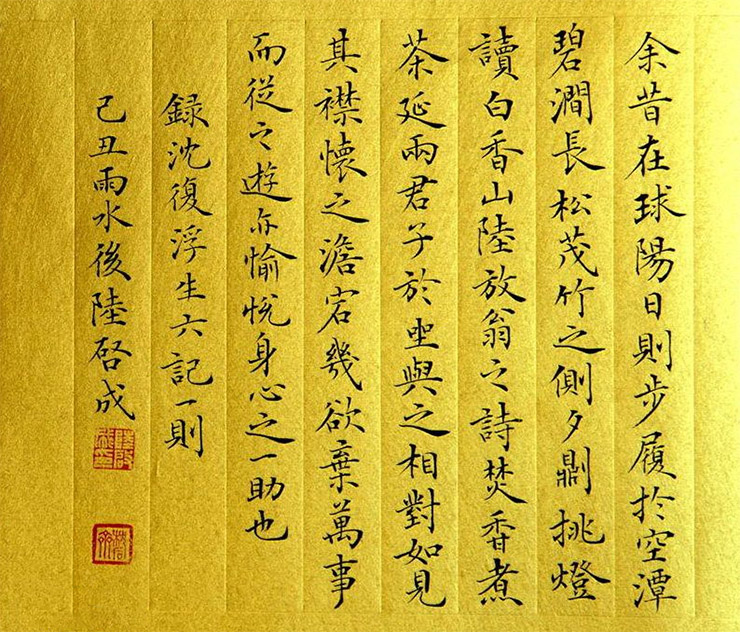 余昔在球陽日則步履於空潭
碧澗長松茂竹之側夕則挑燈
讀白香山陸放翁之詩焚香煮
茶延兩君子於坐與之相對如見
其襟懷之澹宕幾欲棄萬事
而從之遊亦愉悅身心之一助也
錄沈復浮生六記一則
己丑雨水後陸啓成